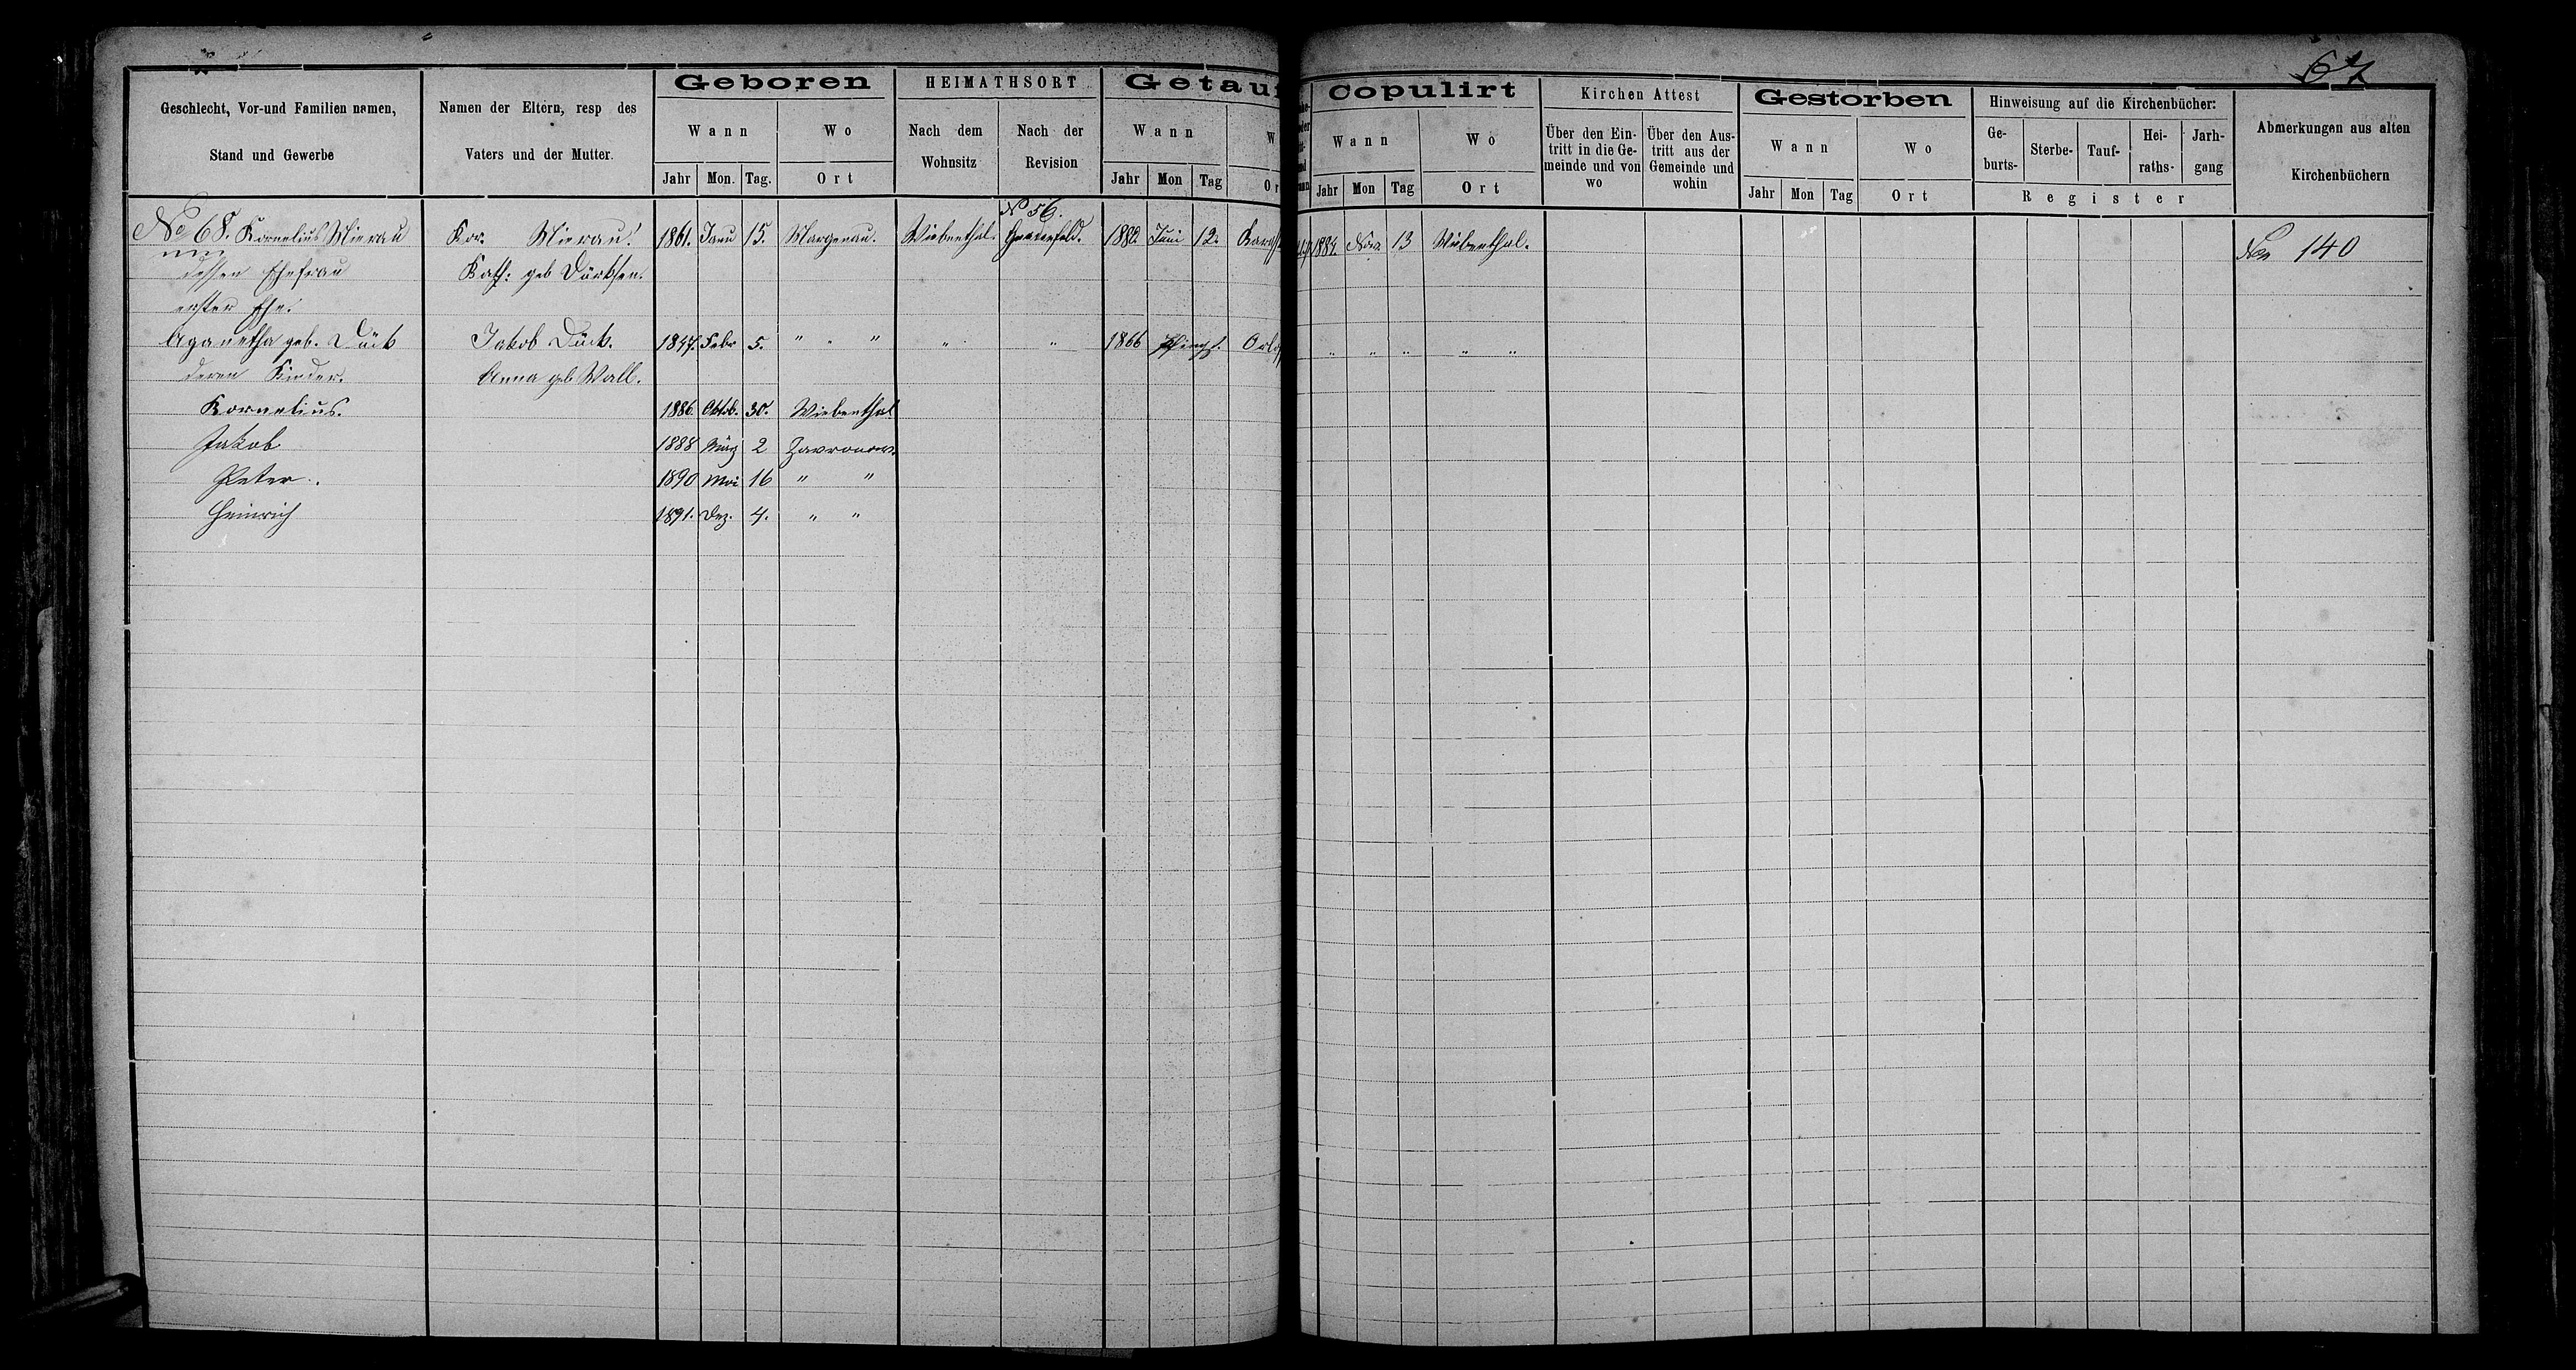 67
Geboren HEIMATHSORT Getauf Copulirt Kirchen Attest Gestorben Hinweisung auf die Kirchenbücher: Abmerkungen aus alten Kirchenbüchern
Geschlecht, Vor-und Familien namen, Stand und Gewerbe Namen der Eltern, resp des Vaters und der Mutter.
Wann Wo Nach dem Wohnsitz Nach der Revision Wann W Wann Wo Über den Eintritt in die Gemeinde und von wo Über den Austritt aus der Gemeinde und wohin Wann Wo Geburts- Sterbe- Tauf- Heiraths- Jarhgang
Jahr Mon. Tag. Ort Jahr Mon Tag Or Jahr Mon Tag Ort Jahr Mon Tag Ort Register
No 56.
No 68. Kornelius Mierau Kor. Mierau. 1861. Janu 15. Margenau. Wiebenthal. 1882. Juni 12. 1884. Nov. 13 Wiebenthal. No 140
dessen Ehefrau Kath: geb Dörksen.
erster Ehe.
Aganetha geb. Dück Jakob Dück. 1847. Febr 5. " " " " " 1866 Pfingst. Orlof " " " " "
deren Kinder. Anna geb Wall.
Kornelius. 1886. Oktob. 30. Wiebenthal
Jakob 1888 März 2
Peter. 1890 Mai 16 " "
Heinrich 1891. Dez. 4. " "